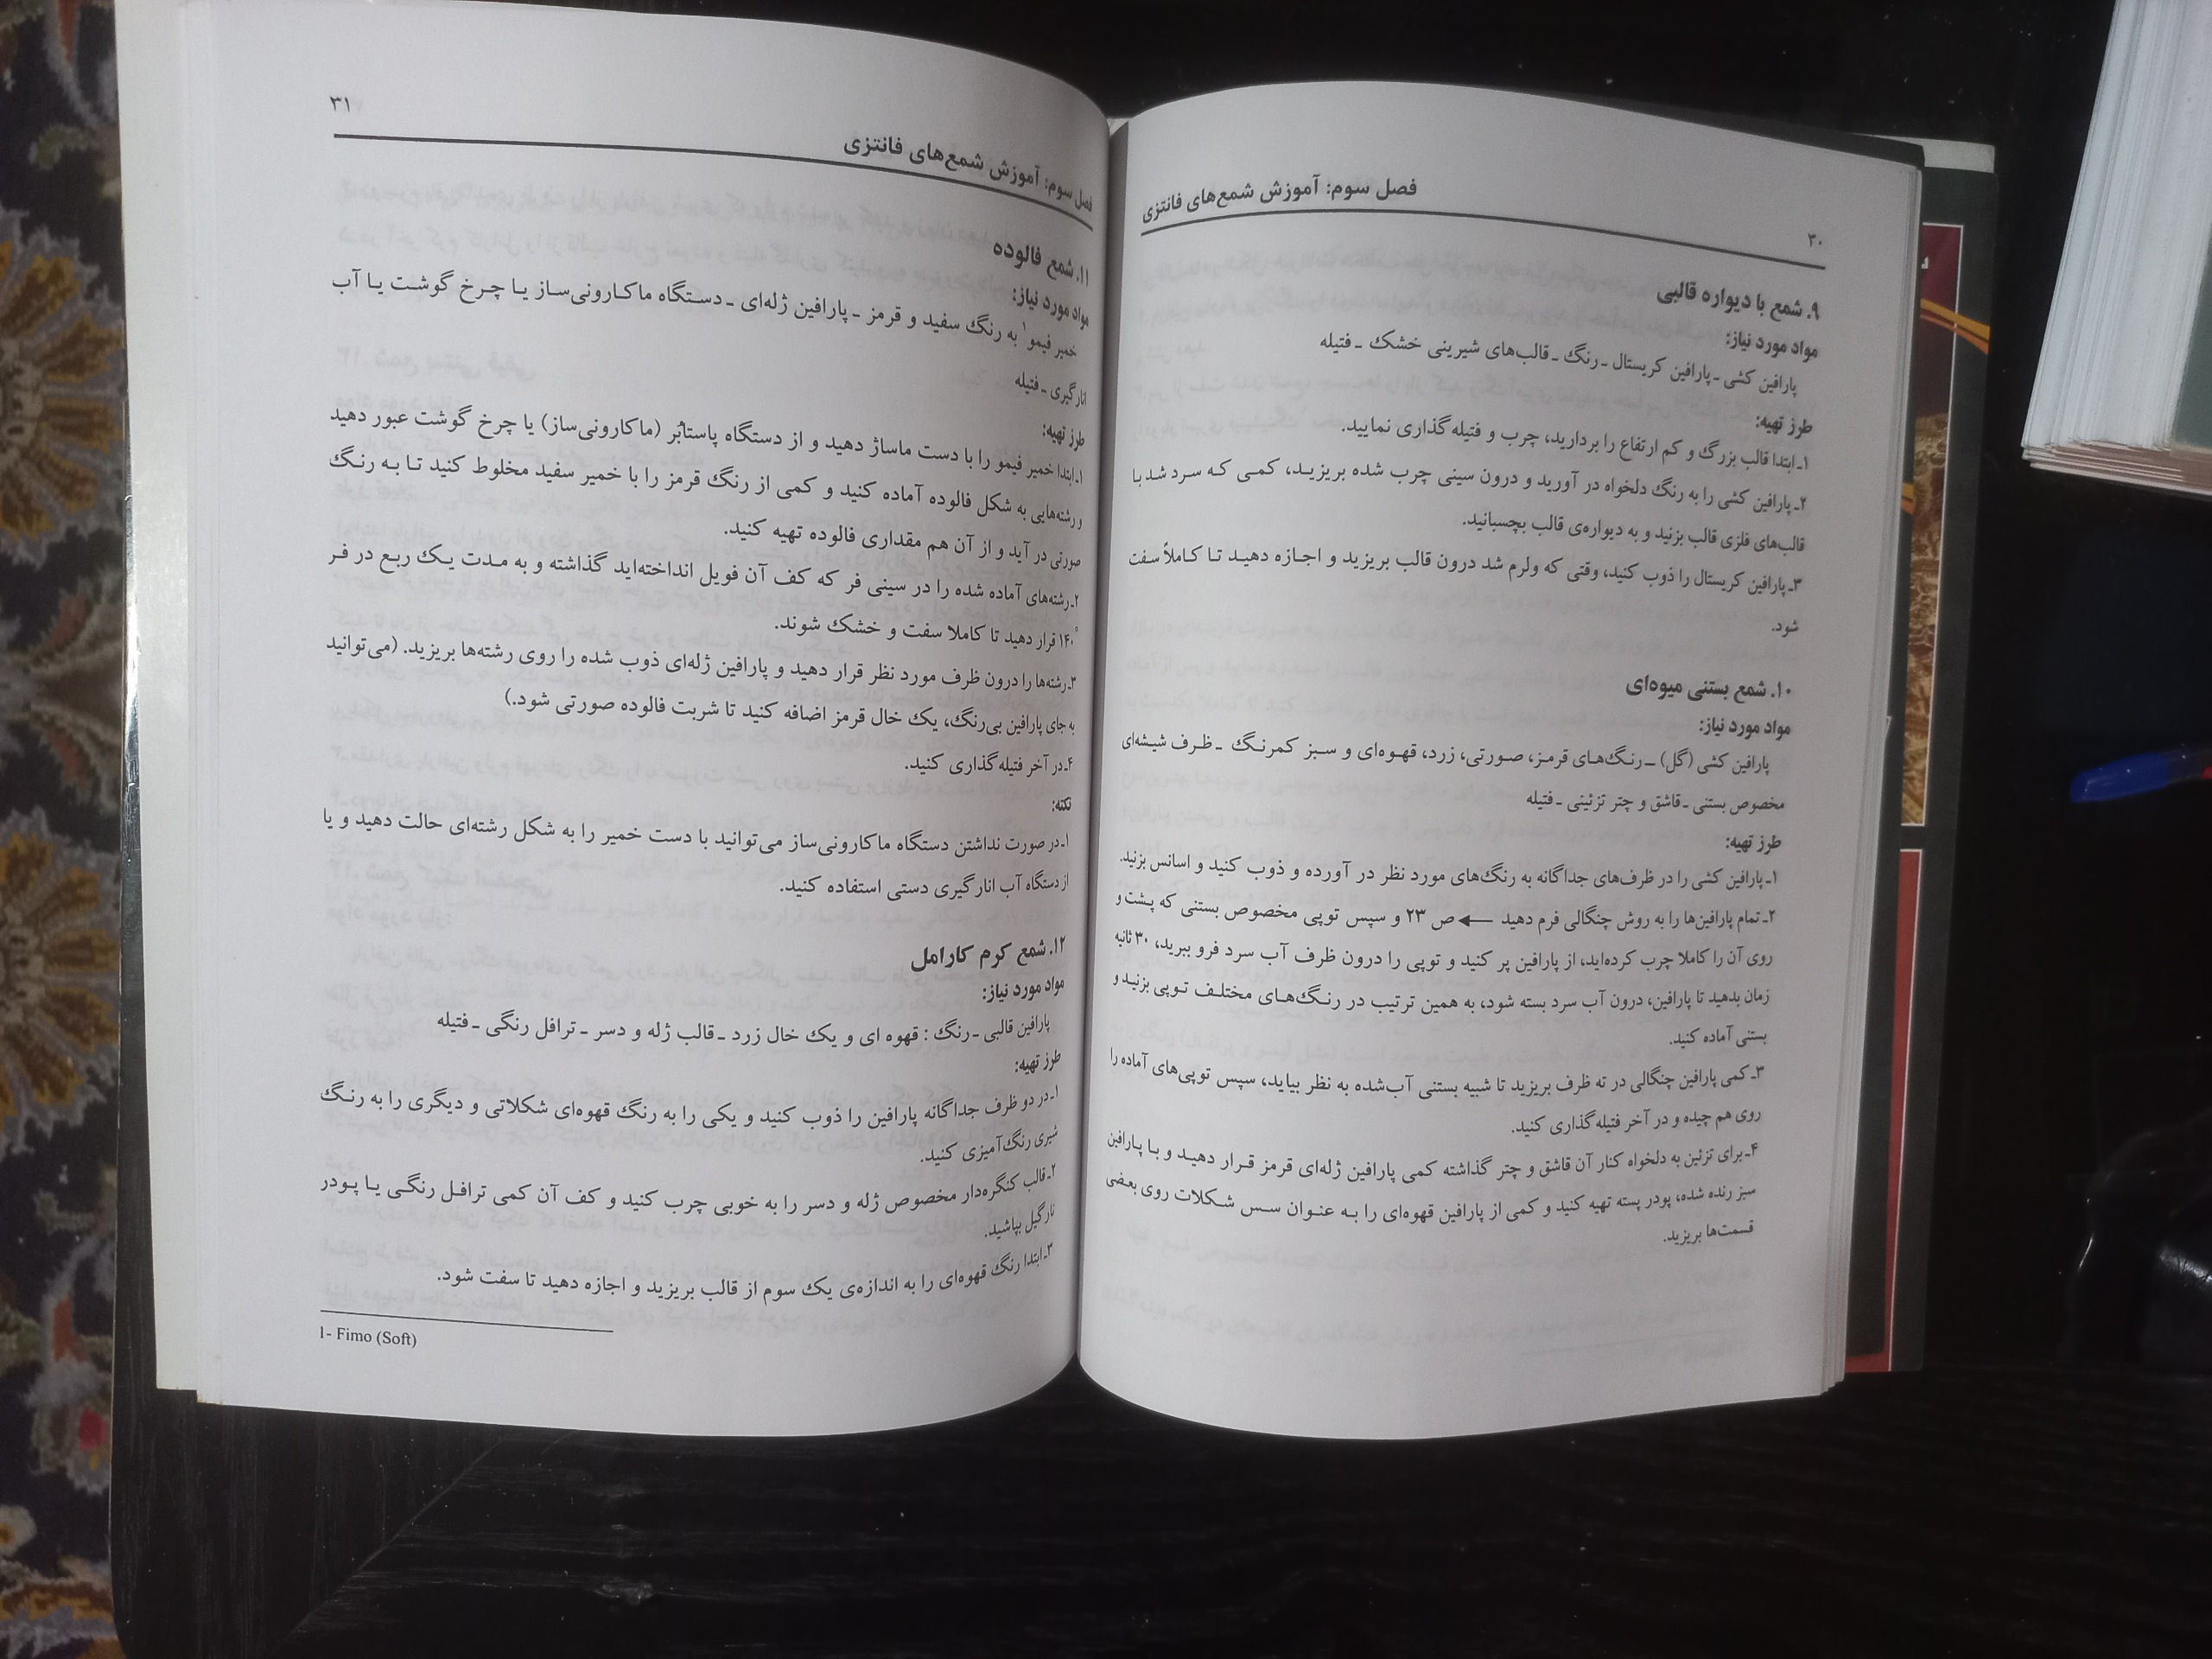 ۳۰
فصل سوم: آموزش شمع‌های فانتزی
۹. شمع با دیواره قالبی
مواد مورد نیاز:
پارافین کشی ـ پارافین کریستال ـ رنگ ـ قالب‌های شیرینی خشک ـ فتیله
طرز تهیه:
۱ـ ابتدا قالب بزرگ و کم ارتفاع را بردارید، چرب و فتیله گذاری نمایید.
۲ـ پارافین کشی را به رنگ دلخواه در آورید و درون سینی چرب شده بریزید، کمی که سرد شد با
قالب‌های فلزی قالب بزنید و به دیواره‌ی قالب بچسبانید.
۳ـ پارافین کریستال را ذوب کنید، وقتی که ولرم شد درون قالب بریزید و اجازه دهید تا کاملاً سفت
شود.
۱۰. شمع بستنی میوه‌ای
مواد مورد نیاز:
پارافین کشی (گل) ـ رنگ‌های قرمز، صورتی، زرد، قهوه‌ای و سبز کمرنگ ـ ظرف شیشه‌ای
مخصوص بستنی ـ قاشق و چتر تزئینی ـ فتیله
طرز تهیه:
۱ـ پارافین کشی را در ظرف‌های جداگانه به رنگ‌های مورد نظر در آورده و ذوب کنید و اسانس بزنید.
۲ـ تمام پارافین‌ها را به روش چنگالی فرم دهید ← ص ۲۳ و سپس توپی مخصوص بستنی که پشت و
روی آن را کاملا چرب کرده‌اید، از پارافین پر کنید و توپی را درون ظرف آب سرد فرو ببرید، ۳۰ ثانیه
زمان بدهید تا پارافین، درون آب سرد بسته شود، به همین ترتیب در رنگ‌های مختلف توپی بزنید و
بستنی آماده کنید.
۳ـ کمی پارافین چنگالی در ته ظرف بریزید تا شبیه بستنی آب‌شده به نظر بیاید، سپس توپی‌های آماده را
روی هم چیده و در آخر فتیله گذاری کنید.
۴ـ برای تزئین به دلخواه کنار آن قاشق و چتر گذاشته کمی پارافین ژله‌ای قرمز قرار دهید و با پارافین
سبز رنده شده، پودر پسته تهیه کنید و کمی از پارافین قهوه‌ای را به عنوان سس شکلات روی بعضی
قسمت‌ها بریزید.
۳۱
فصل سوم: آموزش شمع‌های فانتزی
۱۱. شمع فالوده
مواد مورد نیاز:
خمیر فیمو۱ به رنگ سفید و قرمز ـ پارافین ژله‌ای ـ دستگاه ماکارونی‌ساز یا چرخ گوشت یا آب
انارگیری ـ فتیله
طرز تهیه:
۱ـ ابتدا خمیر فیمو را با دست ماساژ دهید و از دستگاه پاستابُر (ماکارونی‌ساز) یا چرخ گوشت عبور دهید
و رشته‌هایی به شکل فالوده آماده کنید و کمی از رنگ قرمز را با خمیر سفید مخلوط کنید تا به رنگ
صورتی در آید و از آن هم مقداری فالوده تهیه کنید.
۲ـ رشته‌های آماده شده را در سینی فر که کف آن فویل انداخته‌اید گذاشته و به مدت یک ربع در فر
۱۴۰° قرار دهید تا کاملا سفت و خشک شوند.
۳ـ رشته‌ها را درون ظرف مورد نظر قرار دهید و پارافین ژله‌ای ذوب شده را روی رشته‌ها بریزید. (می‌توانید
به جای پارافین بی‌رنگ، یک خال قرمز اضافه کنید تا شربت فالوده صورتی شود.)
۴ـ در آخر فتیله گذاری کنید.
نکته:
۱ـ در صورت نداشتن دستگاه ماکارونی‌ساز می‌توانید با دست خمیر را به شکل رشته‌ای حالت دهید و یا
از دستگاه آب انارگیری دستی استفاده کنید.
۱۲. شمع کرم کارامل
مواد مورد نیاز:
پارافین قالبی ـ رنگ : قهوه ای و یک خال زرد ـ قالب ژله و دسر ـ ترافل رنگی ـ فتیله
طرز تهیه:
۱ـ در دو ظرف جداگانه پارافین را ذوب کنید و یکی را به رنگ قهوه‌ای شکلاتی و دیگری را به رنگ
شیری رنگ‌آمیزی کنید.
۲ـ قالب کنگره‌دار مخصوص ژله و دسر را به خوبی چرب کنید و کف آن کمی ترافل رنگی یا پودر
نارگیل بپاشید.
۳ـ ابتدا رنگ قهوه‌ای را به اندازه‌ی یک سوم از قالب بریزید و اجازه دهید تا سفت شود.
1- Fimo (Soft)